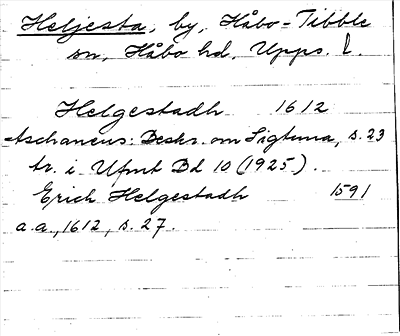 Heljesta, by, Håbo-Tibble
sn, Håbo hd, Upps. l.
Helgestadh 1612
Aschaneus: Beskr. om Sigtuna, s. 23
tr. i Ufmt Bd 10 (1925).
Erich Helgestadh 1591
a.a., 1612, s. 27.